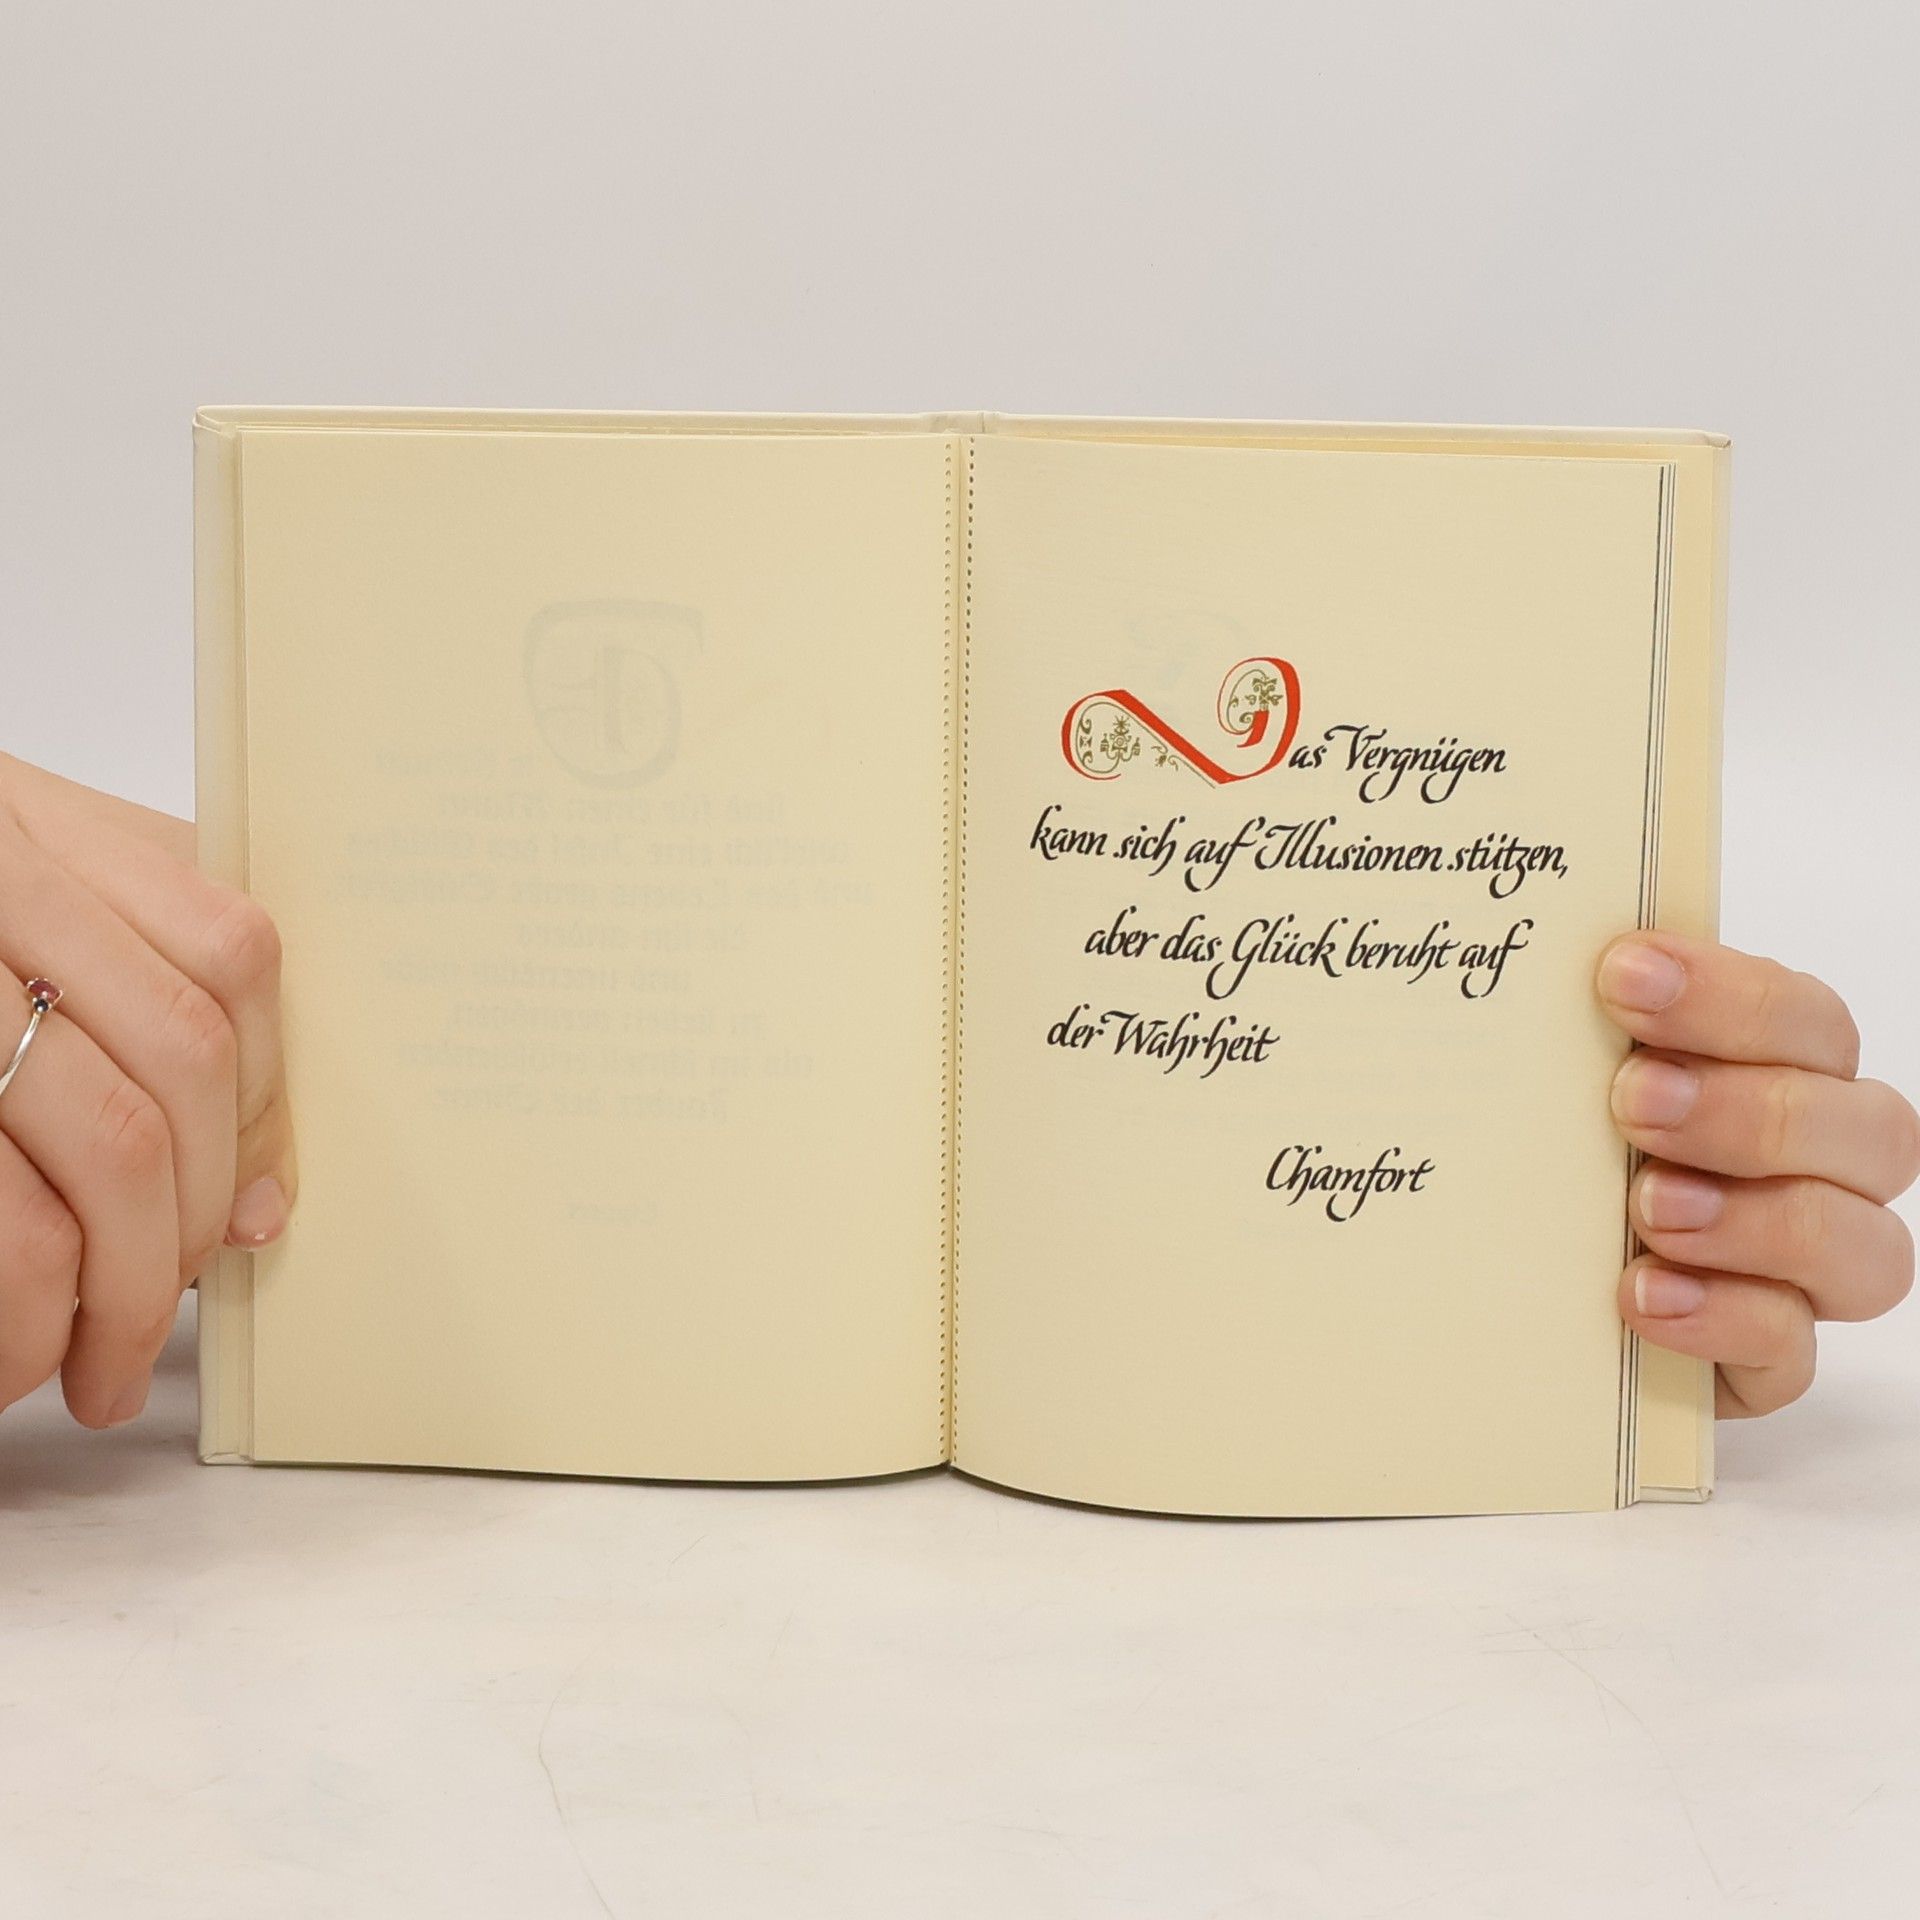 Das Vergnügen
kann sich auf Illusionen stützen,
aber das Glück beruht auf
der Wahrheit
Chamfort